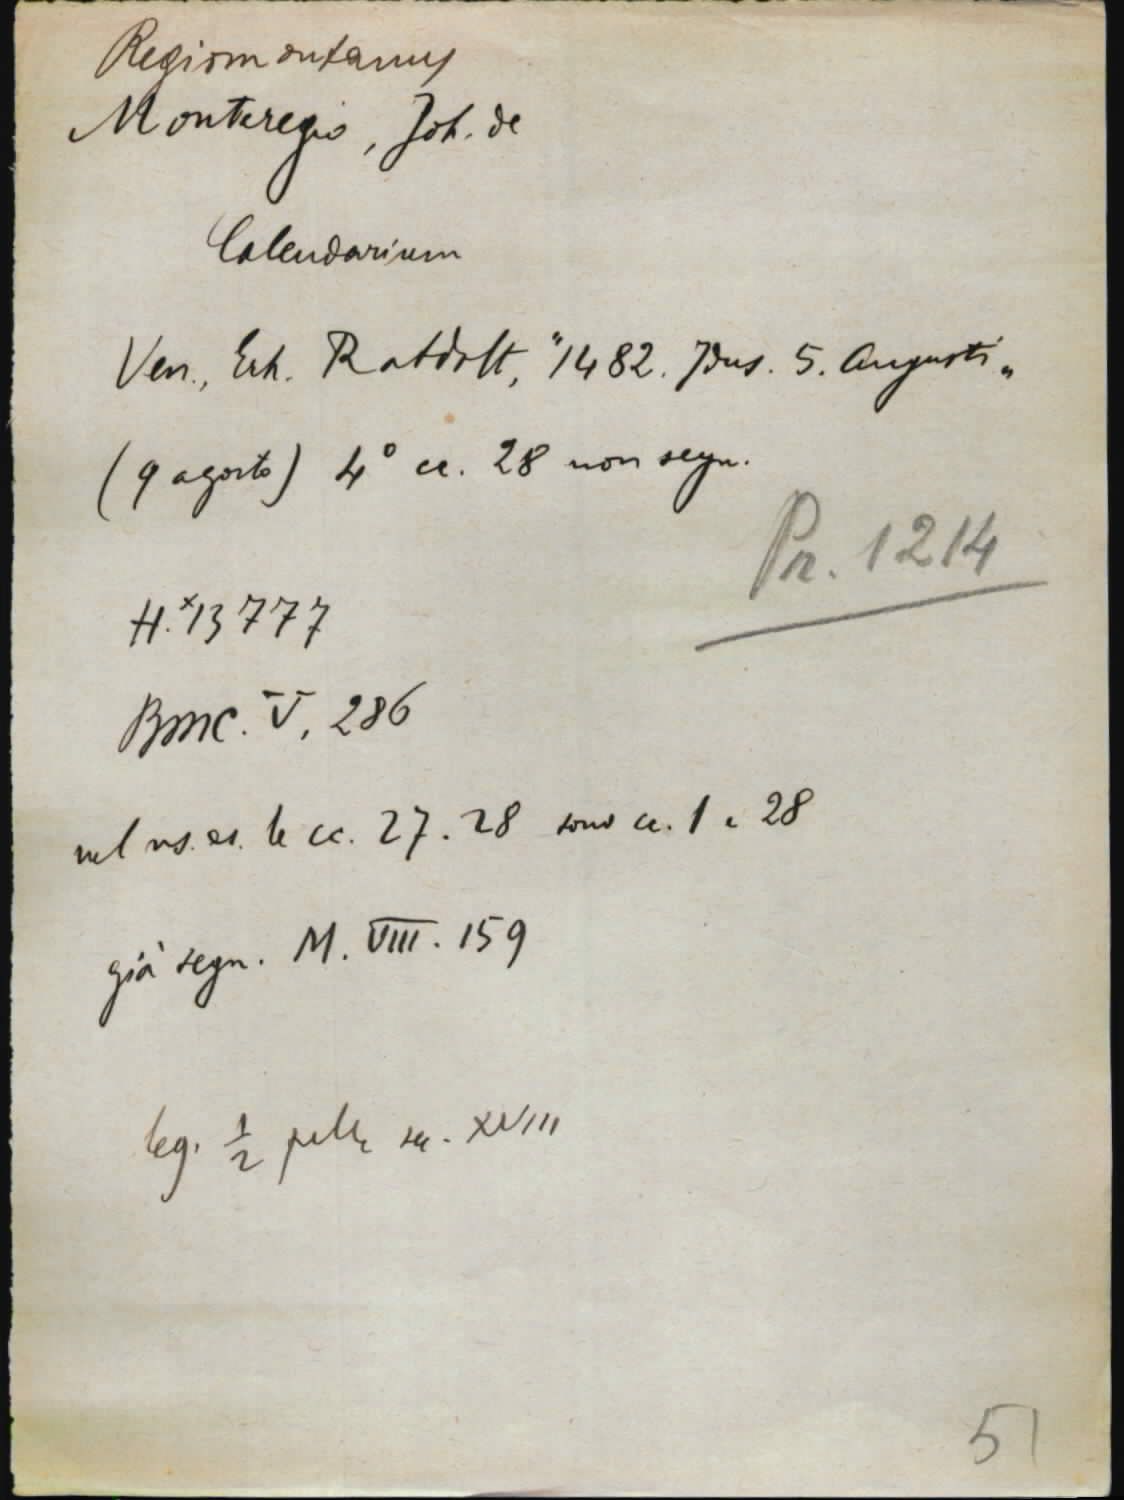 Regiomontanus
Monteregio, Joh. de
Calendarium
Ven., Erh. Ratdolt, "1482. Idus. 5. Augusti"
(9 agosto) 4° cc. 28 non segn.
Pr. 1214
H.x13777
BMC. V, 286
nel ns. es. le cc. 27. 28 sono cc. 1 e 28
già segn. M. VIII. 159
leg. 1/2 pelle sec. XVIII
51